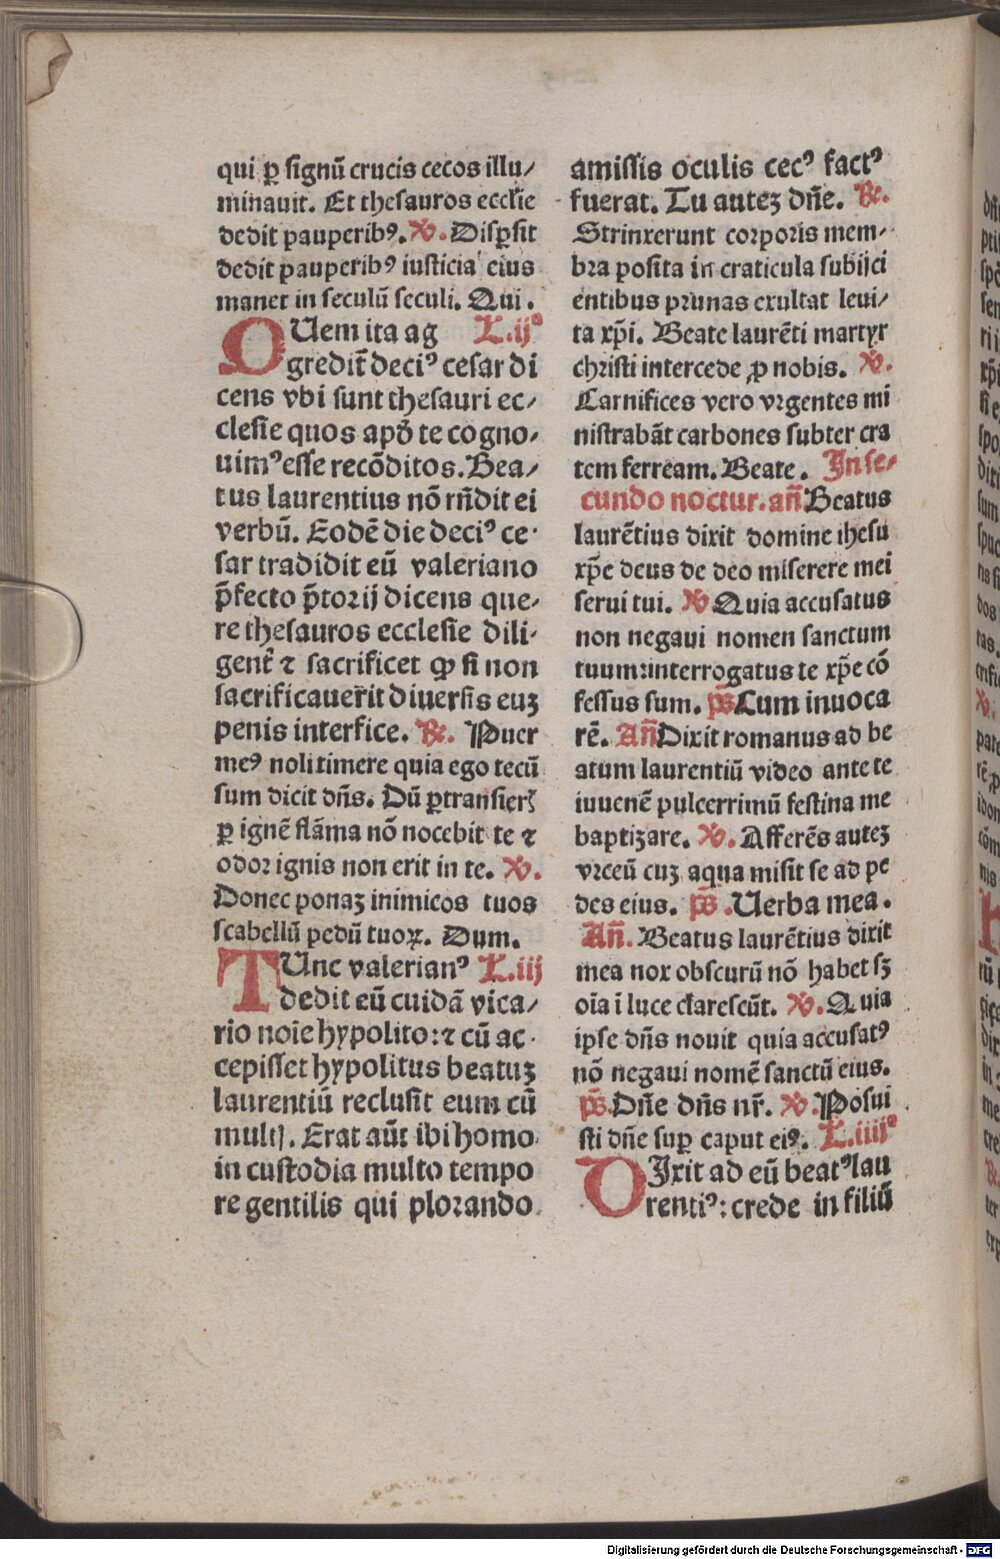 qui ꝑ ſignū crucis cecos illu/
minauit. Et theſauros eccl̄ie
dedit pauperibꝰ. ℣. Diſꝑſit
dedit pauperibꝰ iuſticia eius
manet in ſeculū ſeculi. Qui.
QUem ita ag L.ijº
gredit̄ deciꝰ ceſar di
cens vbi ſunt theſauri ec/
cleſie quos apd̄ te cogno/
uimꝰ eſſe recōditos. Bea/
tus laurentius nō rn̄dit ei
verbū. Eodē die deciꝰ ce
ſar tradidit eū valeriano
p̄fecto p̄torij dicens que/
re theſauros eccleſie dili
gent̄ ⁊ ſacrificet ꝙ ſi non
ſacrificauerit diuerſis euꝫ
penis interfice. ℟. Puer
meꝰ noli timere quia ego tecū
ſum dicit dn̄s. Dū ꝑtranſierꝭ
ꝑ ignē flāma nō nocebit te ⁊
odoꝛ ignis non erit in te. ℣.
Donec ponaꝫ inimicos tuos
ſcabellū pedū tuoꝝ. Dum.
TUnc valerianꝰ L.iij
dedit eū cuidā vica/
rio noīe hypolito: ⁊ cū ac
cepiſſet hypolitus beatuꝫ
laurentiū recluſit eum cū
multꝭ. Erat aūt ibi homo
in cuſtodia multo tempo
re gentilis qui ploꝛando
amiſſis oculis cecꝰ factꝰ
fuerat. Tu auteꝫ dn̄e. ℟.
Strinxerunt coꝛpoꝛis mem/
bꝛa poſita in craticula ſubijci
entibus pꝛunas exultat leui/
ta xp̄i. Beate laurēti martyr
chꝛiſti intercede ꝓ nobis. ℣.
Carnifices vero vꝛgentes mi
niſtrabāt carbones ſubter cra
tem ferream. Beate. In ſe/
cundo noctur. an̄ Beatus
laurētius dixit domine iheſu
xp̄e deus de deo miſerere mei
ſerui tui. ℣. Quia accuſatus
non negaui nomen ſanctum
tuum: interrogatus te xp̄e cō
feſſus ſum. p̄s Cum inuoca
rē. An̄ Dixit romanus ad be
atum laurentiū video ante te
iuuenē pulcerrimū feſtina me
baptiꝫare. ℣. Afferēs auteꝫ
vꝛceū cuꝫ aqua miſit ſe ad pe
des eius. p̄s. Uerba mea.
An̄. Beatus laurētius dixit
mea nox obſcurū nō habet ſꝫ
oīa ī luce clareſcūt. ℣. Quia
ipſe dn̄s nouit quia accuſatꝰ
nō negaui nomē ſanctū eius.
p̄s. Dn̄e dn̄s nr̄. ℣. Poſui
ſti dn̄e ſuꝑ caput eiꝰ. L.iiijº
DIxit ad eū beatꝰ lau
rentiꝰ: crede in filiū
Digitalisierung gefördert durch die Deutsche Forschungsgemeinschaft - DFG